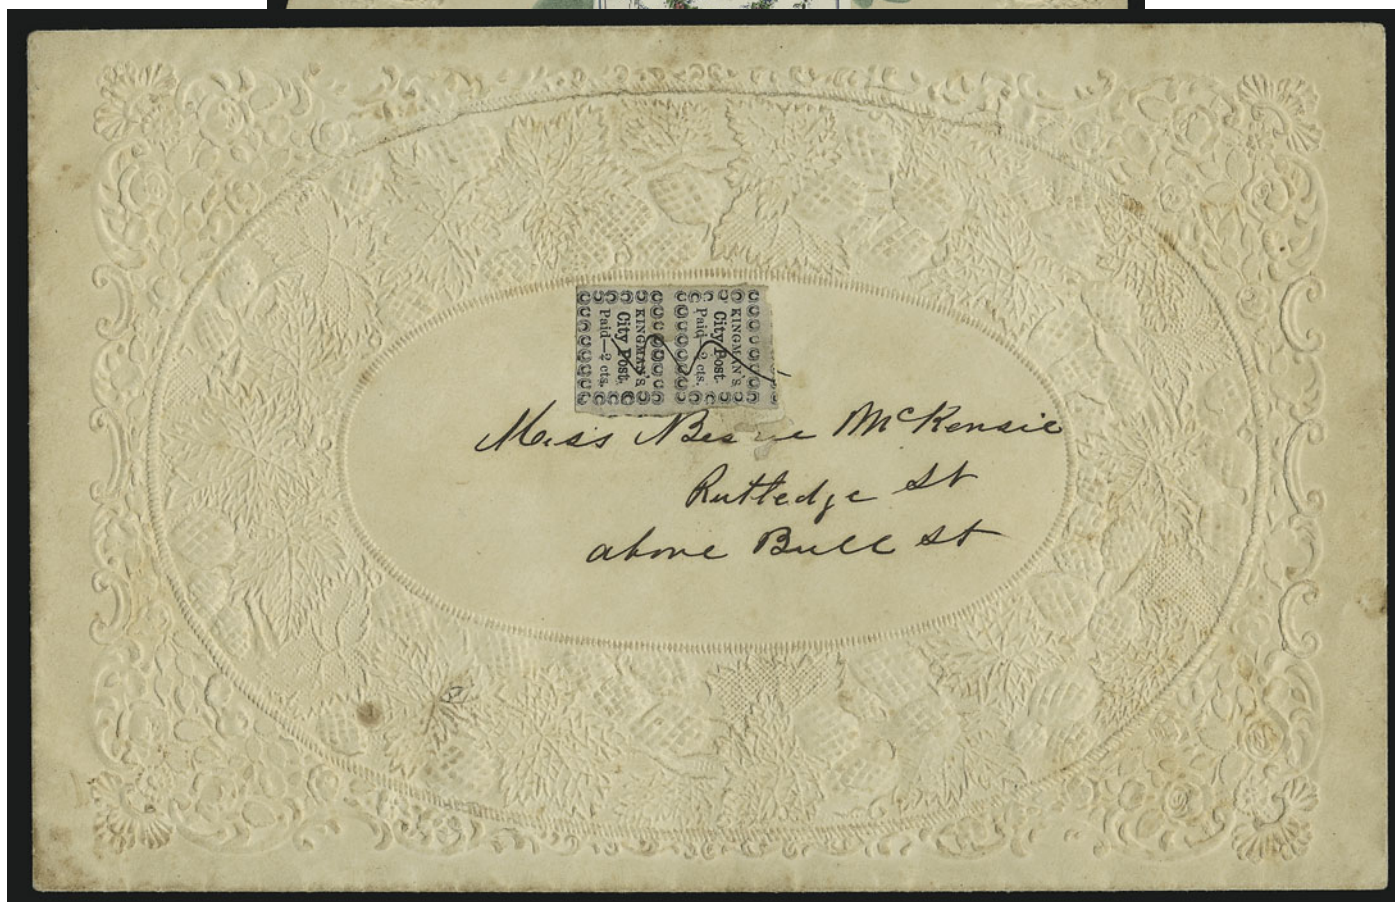 KINGMAN'S
City Post.
Paid—2 cts.
KINGMAN'S
City Post.
Paid—2 cts.
Miss McKensie
Rutledge St
above Bull St